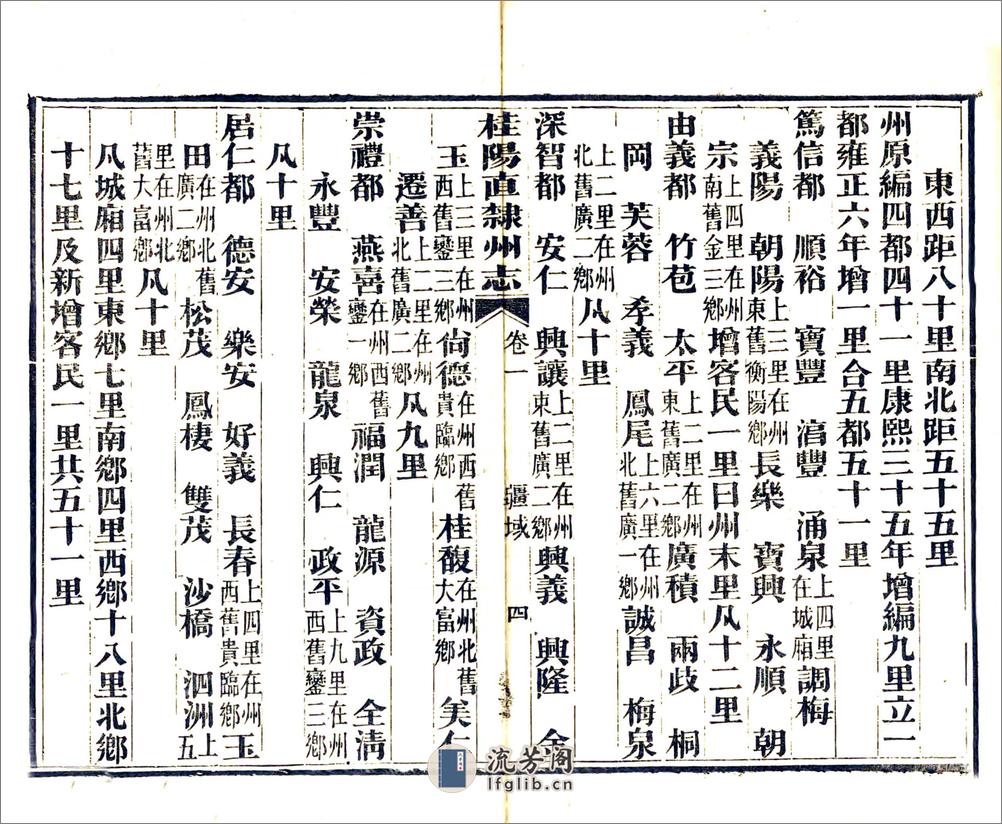 東西距八十里南北距五十五里
州原編四都四十一里康熙三十五年增編九里立一
都雍正六年增一里合五都五十一里
篤信都 順裕 寶豐 滈豐 涌泉上四里在城廂調梅
義陽 朝陽上三里在州東舊衡陽鄉長樂 寶興 永順 朝
宗上四里在州南舊金三鄉增客民一里曰州末里凡十二里
由義都 竹苞 太平上二里在州東舊廣二鄉廣積 兩歧 桐
岡 芙蓉 孝義 鳳尾上六里在州北舊廣一鄉誠昌 梅泉
上二里在州北舊廣二鄉凡十里
深智都 安仁 興讓上二里在州東舊廣二鄉興義 興隆 金
桂陽直隸州志 卷一 疆域 四
玉上三里在州西舊鑾三鄉尙德在州西舊貴臨鄉桂馥在州北舊大富鄉美仁
遷善上二里在州北舊廣二鄉凡九里
崇禮都 燕喜在州西舊鑾一鄉福潤 龍源 資政 全淸
永豐 安榮 龍泉 興仁 政平上九里在州西舊鑾三鄉
凡十里
居仁都 德安 樂安 好義 長春上四里在州西舊貴臨鄉玉
田在州北舊廣二鄉松茂 鳳棲 雙茂 沙橋 泗洲上五
里在州北舊大富鄉凡十里
凡城廂四里東鄉七里南鄉四里西鄉十八里北鄉
十七里及新增客民一里共五十一里
流芳阁
lfglib.cn